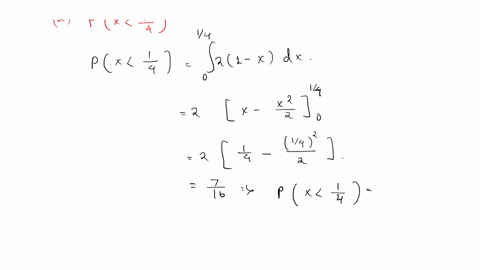 P(x < 1/4)
P(x < 1/4) = ∫₀^{1/4} 2(1-x) dx.
= 2 [x - x²/2]₀^{1/4}
= 2 [1/4 - (1/4)²/2].
= 7/16 => P(x < 1/4) =